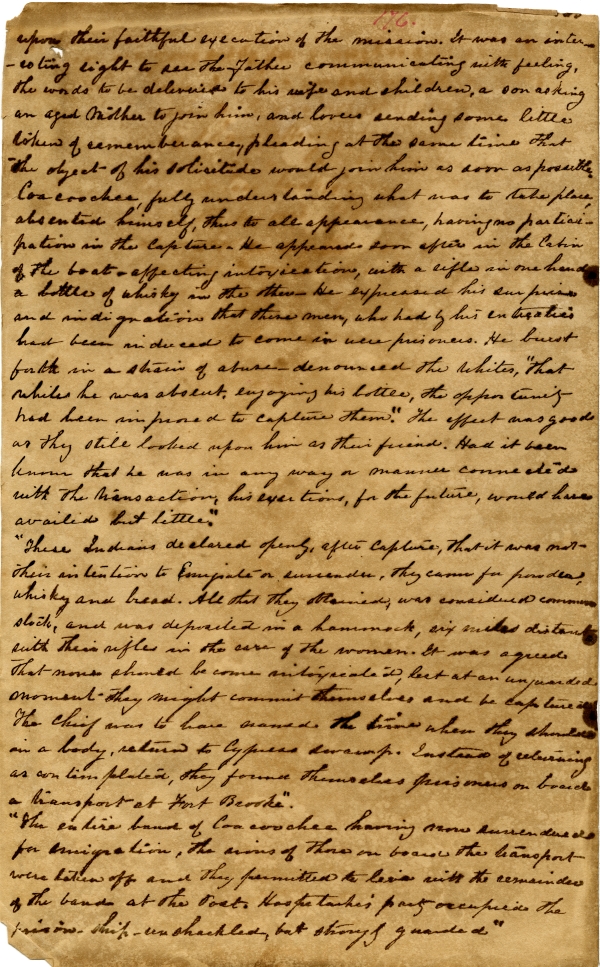 176.
upon their faithful execution of the mission. It was an inter-
-esting sight to see the Father communicating with feeling,
the words to be delivered to his wife and children, a son asking
an aged Mother to join him, and lovers sending some little
token of rememberance, pleading at the same time that
the object of his solicitude would join him as soon as possible.
Coacoochee, fully understanding what was to take place,
absented himself, thus to all appearance, having no partici-
pation in the capture. He appeared soon after in the Cabin
of the boat - affecting intoxication, with a rifle in one hand
a bottle of whisky in the other - He expressed his surprise
and indignation that these men, who had by his entreaties
had been induced to come in were prisoners. He burst
forth in a strain of abuse - denounced the Whites, "that
whiles he was absent, enjoying his bottle, the opportunity
had been improved to capture them." The effect was good
as they still looked upon him as their friend. Had it been
known that he was in any way or manner connected
with the transaction, his exertions, for the future, would have
availed but little."
"These Indians declared openly, after capture, that it was not-
their intention to Emigrate or surrender, they came for powder,
whisky and bread. All that they obtained, was considered common
stock, and was deposited in a hammock, six miles distant
with their rifles in the care of the women. It was agreed
that none should become intoxicated, lest at an unguarded
moment they might commit themselves and be captured.
The Chief was to have named the time when they should
in a body, return to Cypress swamp. Instead of returning
as contemplated, they found themselves prisoners on board
a transport at Fort Brooke".
"The entire band of Coacoochee having now surrendered
for emigration, the irons of those on board the transport
were taken off and they permitted to live with the remainder
of the band at the Post. Hospetarke's party occupied the
prison-ship - unshackled, but strongly guarded"